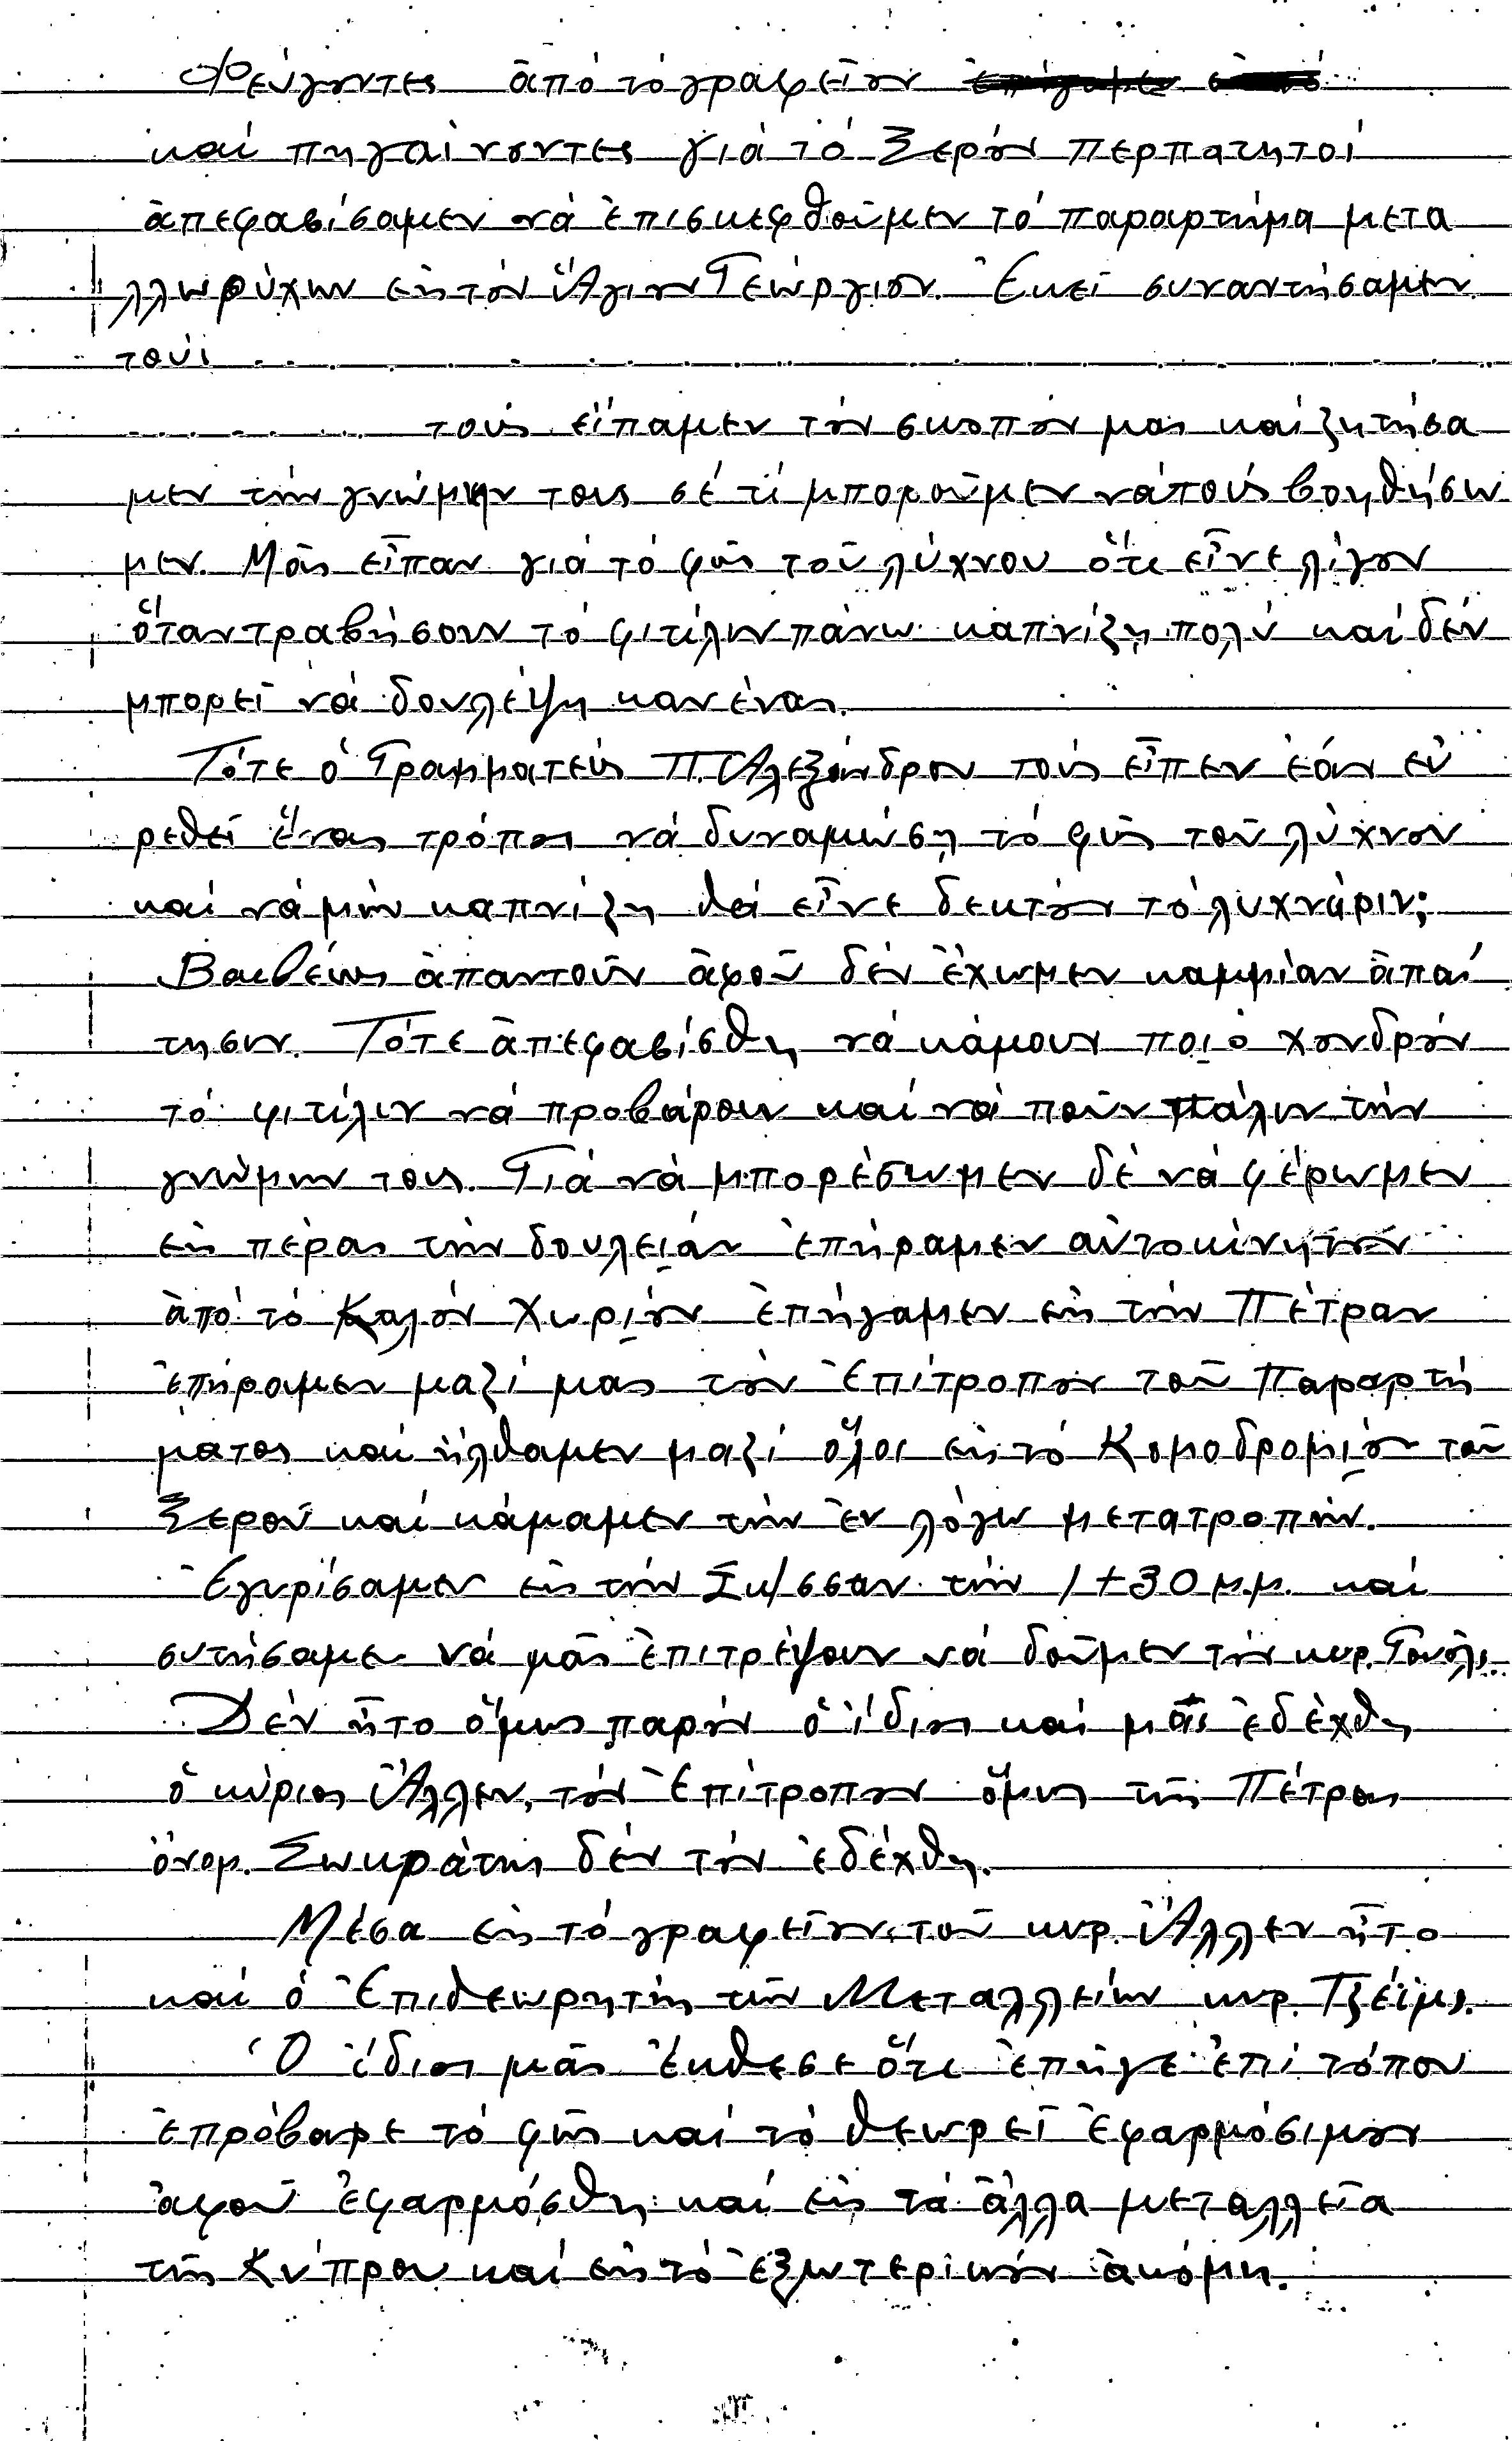 Φεύγοντες ἀπό τό γραφεῖον
καί πηγαίνοντες γιά τό Ξερόν περπατητοί
ἀπεφασίσαμεν νά ἐπισκεφθοῦμεν τό παραρτήμα μετα
λλωρύχων εἰς τόν Ἅγιον Γεώργιον. Ἐκεῖ συναντήσαμεν
τούς . . . . . . . . . . . . . . . .
. . . . . . . . τούς εἴπαμεν τόν σκοπόν μας καί ζητήσα
μεν τήν γνώμην τους σέ τί μποροῦμεν νά τούς βοηθήσω
μεν. Μᾶς εἶπαν γιά τό φῶς τοῦ λύχνου ὅτι εἶνε λίγον
ὅταν τραβήσουν τό φιτίλιν πάνω καπνίζη πολύ καί δέν
μπορεῖ νά δουλέψη κανένας.
Τότε ὁ Γραμματεύς Π. Ἀλεξάνδρου τούς εἶπεν ἐάν εὑ
ρεθεῖ ἕνας τρόπος νά δυναμώση τό φῶς τοῦ λύχνου
καί νά μήν καπνίζη θά εἶνε δεκτόν τό λυχνάριν;
Βαιβέως ἀπαντοῦν ἀφοῦ δέν ἔχωμεν καμμίαν ἀπαί
τησιν. Τότε ἀπεφασίσθη νά κάμουν ποιό χονδρόν
τό φιτίλιν νά προβάρουν καί νά ποῦν πάλιν τήν
γνώμην τους. Γιά νά μπορέσωμεν δέ νά φέρωμεν
εἰς πέρας τήν δουλειάν ἐπήραμεν αὐτοκίνητον
ἀπό τό Καλόν Χωριόν ἐπήγαμεν εἰς τήν Πέτραν
ἐπήραμεν μαζί μας τόν Ἐπίτροπον τοῦ Παραρτή
ματος καί ἤλθαμεν μαζί ὅλοι εἰς τό Κομοδρομιόν τοῦ
Ξεροῦ καί κάμαμεν τήν ἐν λόγω μετατροπήν.
Ἐγυρίσαμεν εἰς τήν Σκ/σσαν τήν 1+30 μ.μ. καί
ζητήσαμεν νά μᾶς ἐπιτρέψουν νά δοῦμεν τόν κυρ.
Δέν ἦτο ὅμως παρών ὁ ἴδιος καί μᾶς ἐδέχθη
ὁ κύριος Ἄλλεν, τόν Ἐπίτροπον ὅμως τῆς Πέτρας
ὀνομ. Σωκράτης δέν τόν ἐδέχθη.
Μέσα εἰς τό γραφεῖον τοῦ κυρ. Ἄλλεν ἦτο
καί ὁ Ἐπιθεωρητής τῶν Μεταλλείων κυρ. Τζέϊμς.
Ὁ ἴδιος μᾶς ἔκθεσε ὅτι ἐπῆγε ἐπί τόπου
ἐπρόβαρε τό φῶς καί τό θεωρεῖ ἐφαρμόσιμον
ἀφοῦ ἐφαρμόσθη καί εἰς τά ἄλλα μεταλλεῖα
τῆς Κύπρου καί εἰς τό ἐξωτερικόν ἀκόμη.